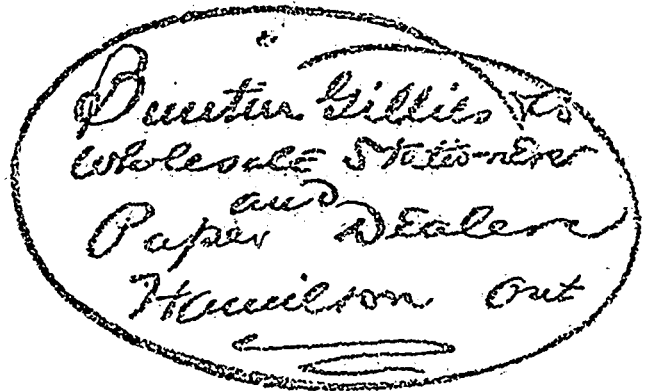 Buntin Gillies Co
Wholesale Stationers
and
Paper Dealers
Hamilton Ont